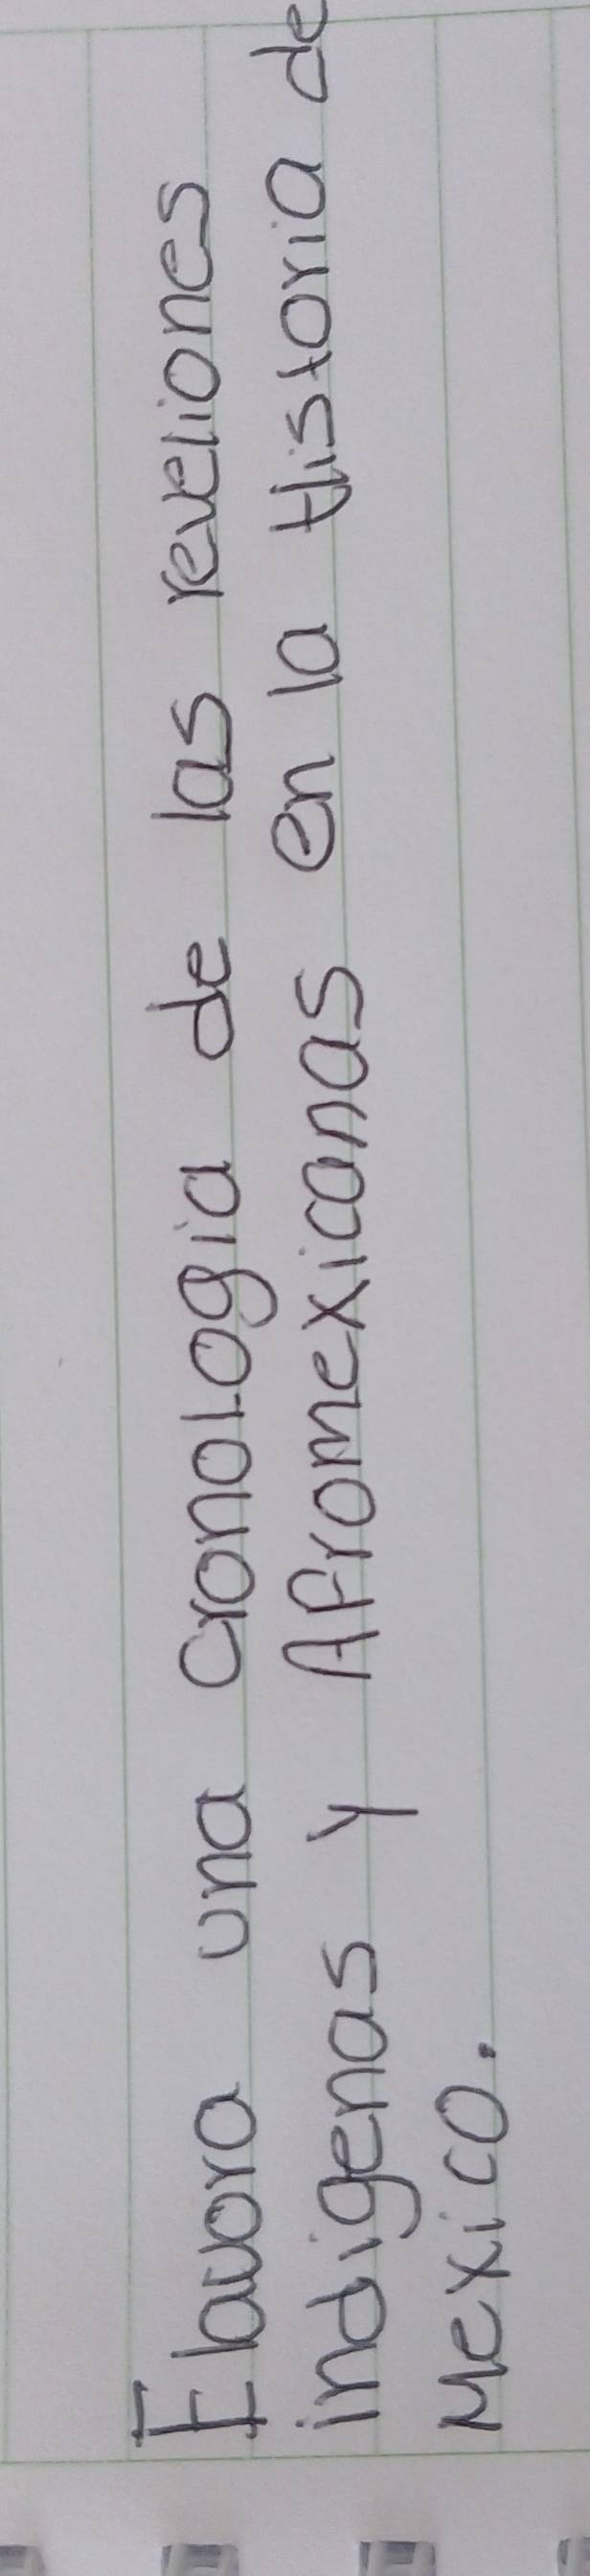 Elavora una cronologia de las reveliones
indigenas y Afromexicanas en la Historia de
Mexico.